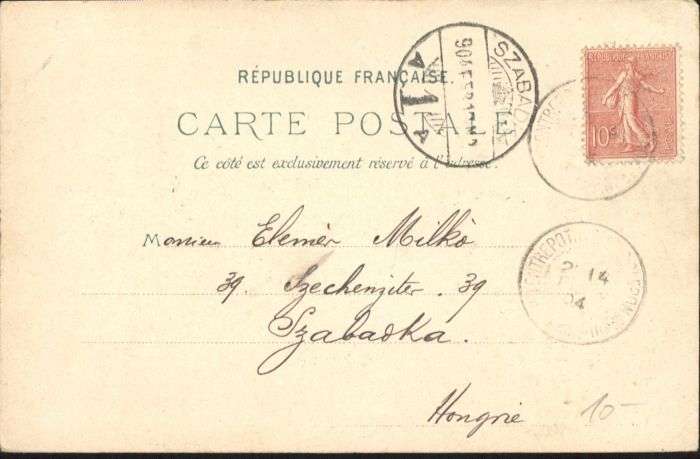 RÉPUBLIQUE FRANÇAISE.
CARTE POSTALE
Ce côté est exclusivement réservé à l'adresse.
SZABAD
A 1 A
RÉPUBLIQUE FRANÇAISE
10
Monsieur Elemèr Milkò
39. Szechenyiter. 39
Szabadka.
Hongrie
ENTREPOT
14
04
10-